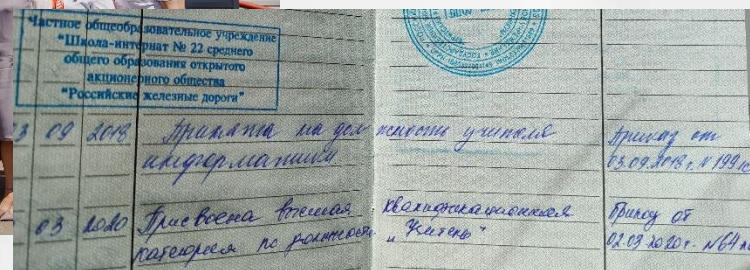 Частное общеобразовательное учреждение
"Школа-интернат № 22 среднего
общего образования открытого
акционерного общества
"Российские железные дороги"
3 09 2018 Принята на должность учителя Приказ от
информатики. 03.09.2018 г. N 199
03 2020 Присвоена высшая квалификационная Приказ от
категория по должности „Учитель" 02.03.2020 г. N64